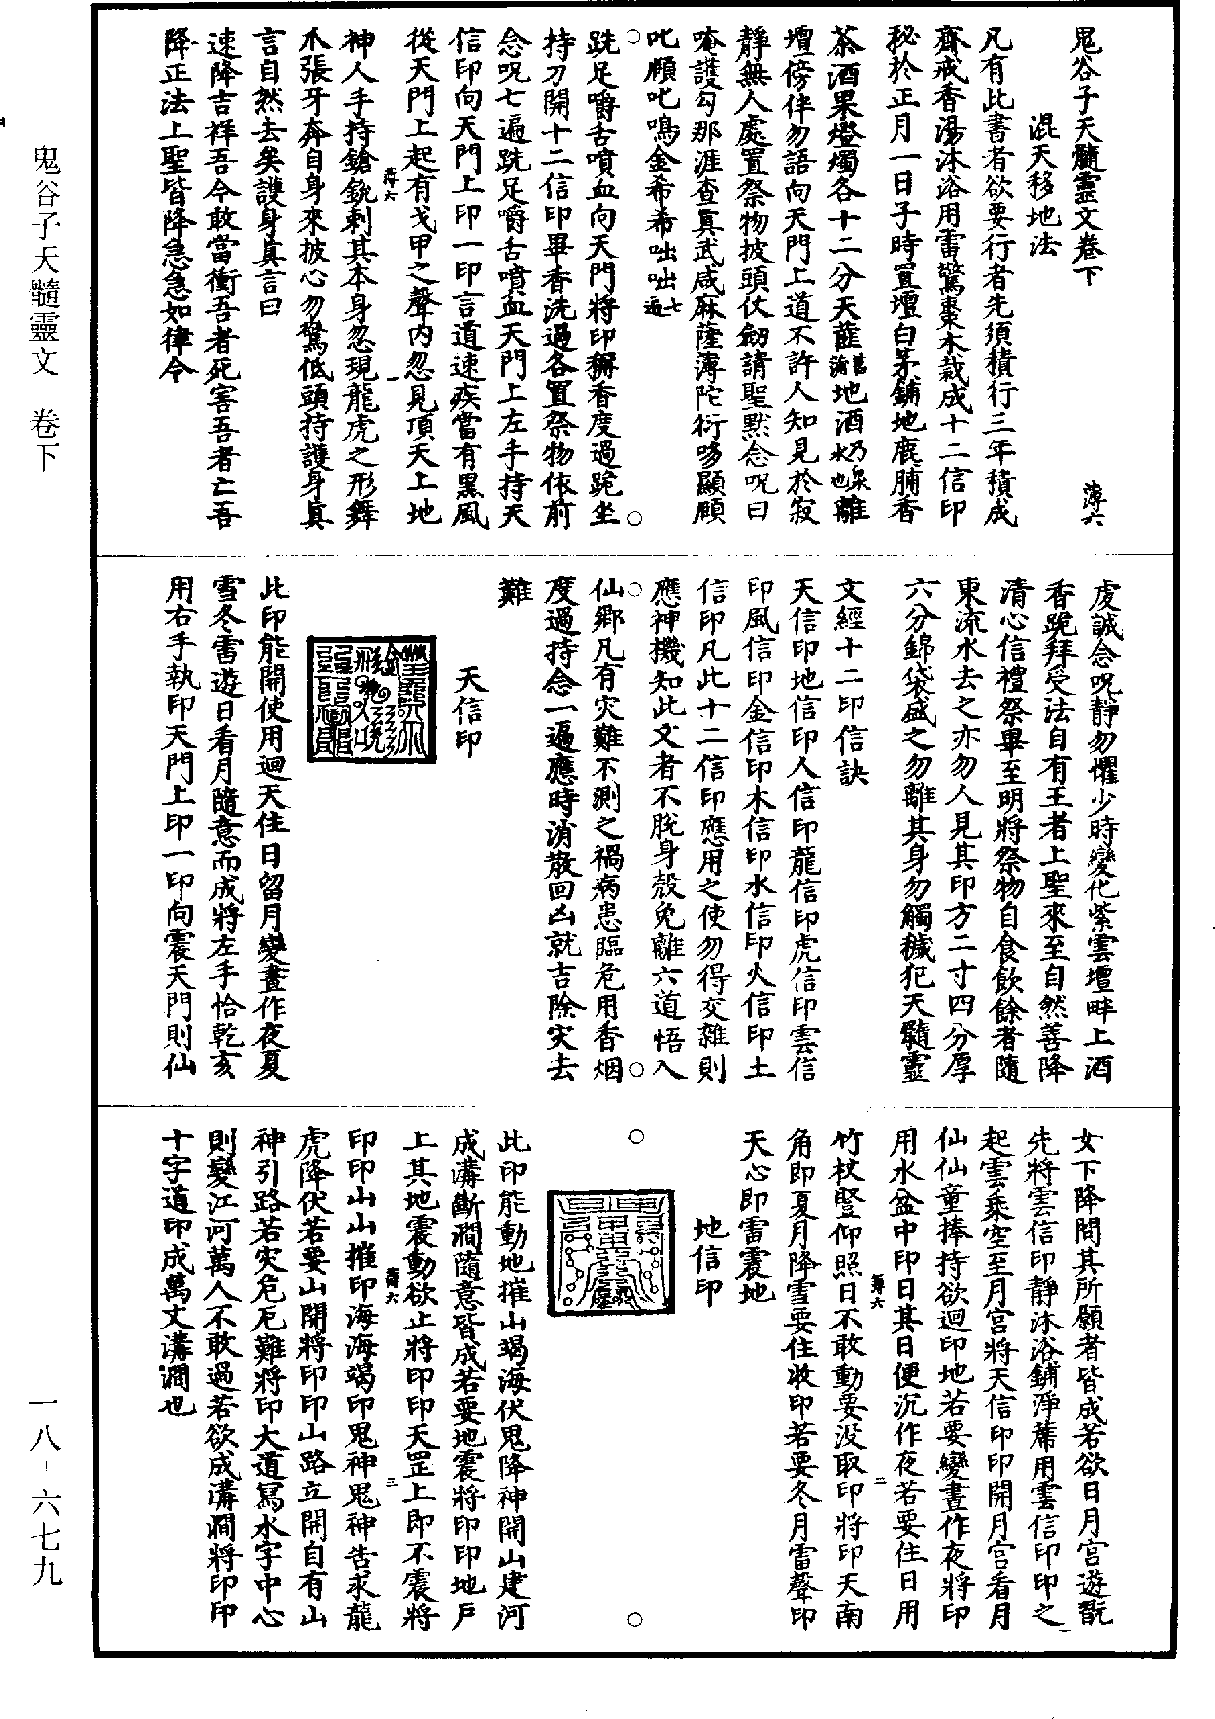 鬼谷子天髓靈文卷下
薄六
混天移地法
凡有此書者欲要行者先須積行三年積成
齋戒香湯沐浴用雷驚棗木裁成十二信印
秘於正月一日子時置壇白茅鋪地鹿脯香
茶酒果燈燭各十二分天䪥地酒乃泉水也離
壇傍伴勿語向天門上道不許人知見於寂
靜無人處置祭物披頭仗劒請聖黙念呪曰
唵護勾那涯查真武咸麻薩溥陀衍哆顯願
叱願叱鳴金希希咄咄七遍
跣足嚼舌噴血向天門將印獬香度過跪坐
持刀開十二信印畢香洗過各置祭物依前
念呪七遍跣足嚼舌噴血天門上左手持天
信印向天門上印一印言道速疾當有黑風
從天門上起有戈甲之聲内忽見頂天上地
薄六
一
神人手持鎗銳刺其本身忽現龍虎之形舞
爪張牙奔自身來披心勿驚低頭持護身真
言自然去矣護身真言曰
速降吉祥吾今敢當衝吾者死害吾者亡吾
降正法上聖皆降急急如律令
虔誠念呪靜勿懼少時變化紫雲壇畔上酒
香跪拜受法自有王者上聖來至自然善降
清心信禮祭畢至明將祭物自食飲餘者隨
東流水去之亦勿人見其印方二寸四分厚
六分錦袋盛之勿離其身勿觸穢犯天髓靈
文經十二印信訣
天信印地信印人信印龍信印虎信印雲信
印風信印金信印木信印水信印火信印土
信印凡此十二信印應用之使勿得交雜則
應神機知此文者不脫身殻免離六道悟入
仙鄉凡有灾難不測之禍病患臨危用香烟
度過持念一遍應時消散回凶就吉除灾去
難
天信印
此印能開使用迴天住日留月變晝作夜夏
雪冬雷遊日看月隨意而成將左手恰乾亥
用右手執印天門上印一印向震天門則仙
女下降問其所願者皆成若欲日月宮遊翫
先將雲信印靜沐浴鋪淨蓆用雲信印印之
起雲乘空至月宮將天信印印開月宮看月
仙仙童捧持欲迴印地若要變晝作夜將印
用水盆中印日其日便沉作夜若要住日用
薄六
二
竹杖豎仰照日不敢動要没取印將印天南
角即夏月降雪要住收印若要冬月雷聲印
天心即雷震地
地信印
此印能動地摧山竭海伏鬼降神開山建河
成溝斷澗隨意皆成若要地震將印印地戶
上其地震動欲止將印印天罡上即不震將
薄六
三
印印山山摧印海海竭印鬼神鬼神告求龍
虎降伏若要山開將印印山路立開自有山
神引路若灾危厄難將印大道寫水字中心
則變江河萬人不敢過若欲成溝澗將印印
十字道印成萬丈溝澗也
鬼谷子天髓靈文　卷下
一八-六七九